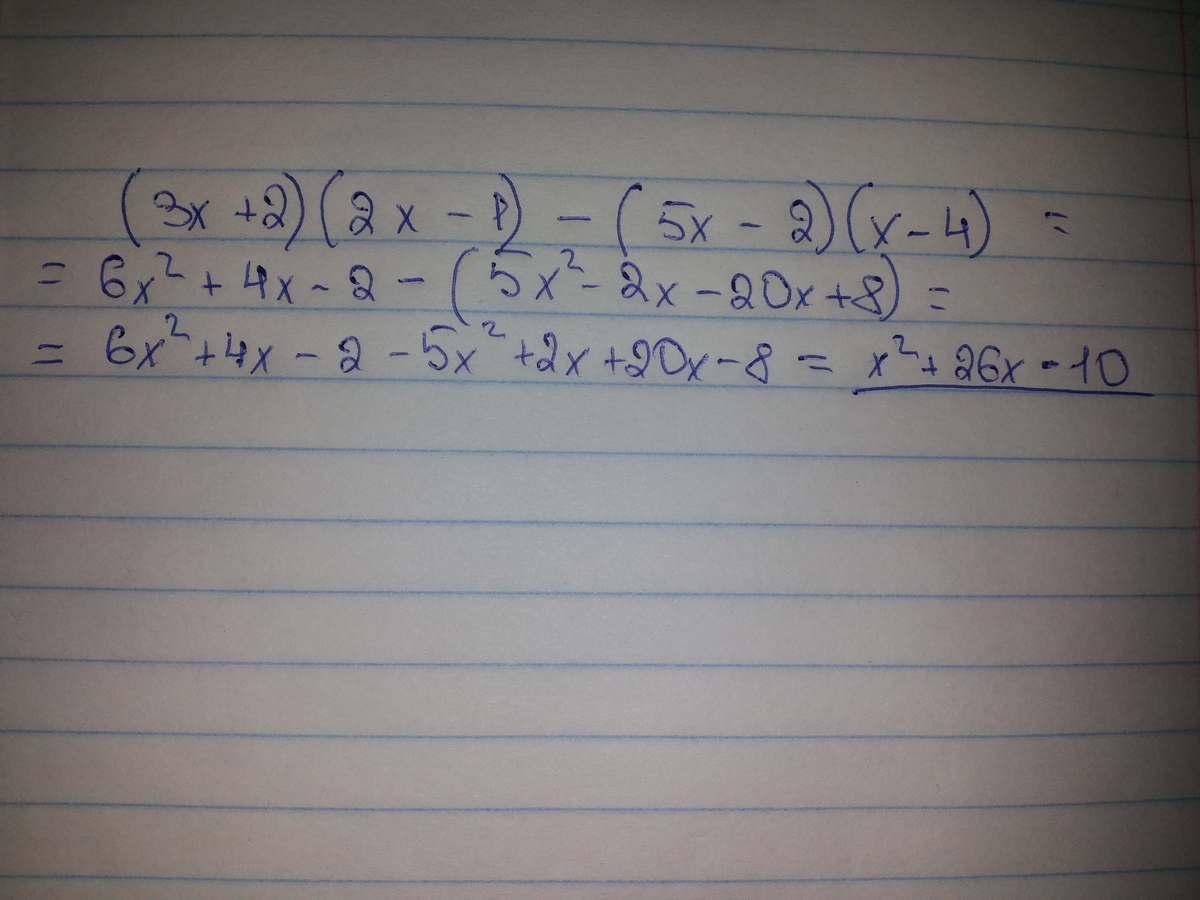 (3x+2)(2x-1) - (5x-2)(x-4) =
= 6x²+4x-2-(5x²-2x-20x+8) =
= 6x²+4x-2-5x²+2x+20x-8 = x²+26x-10